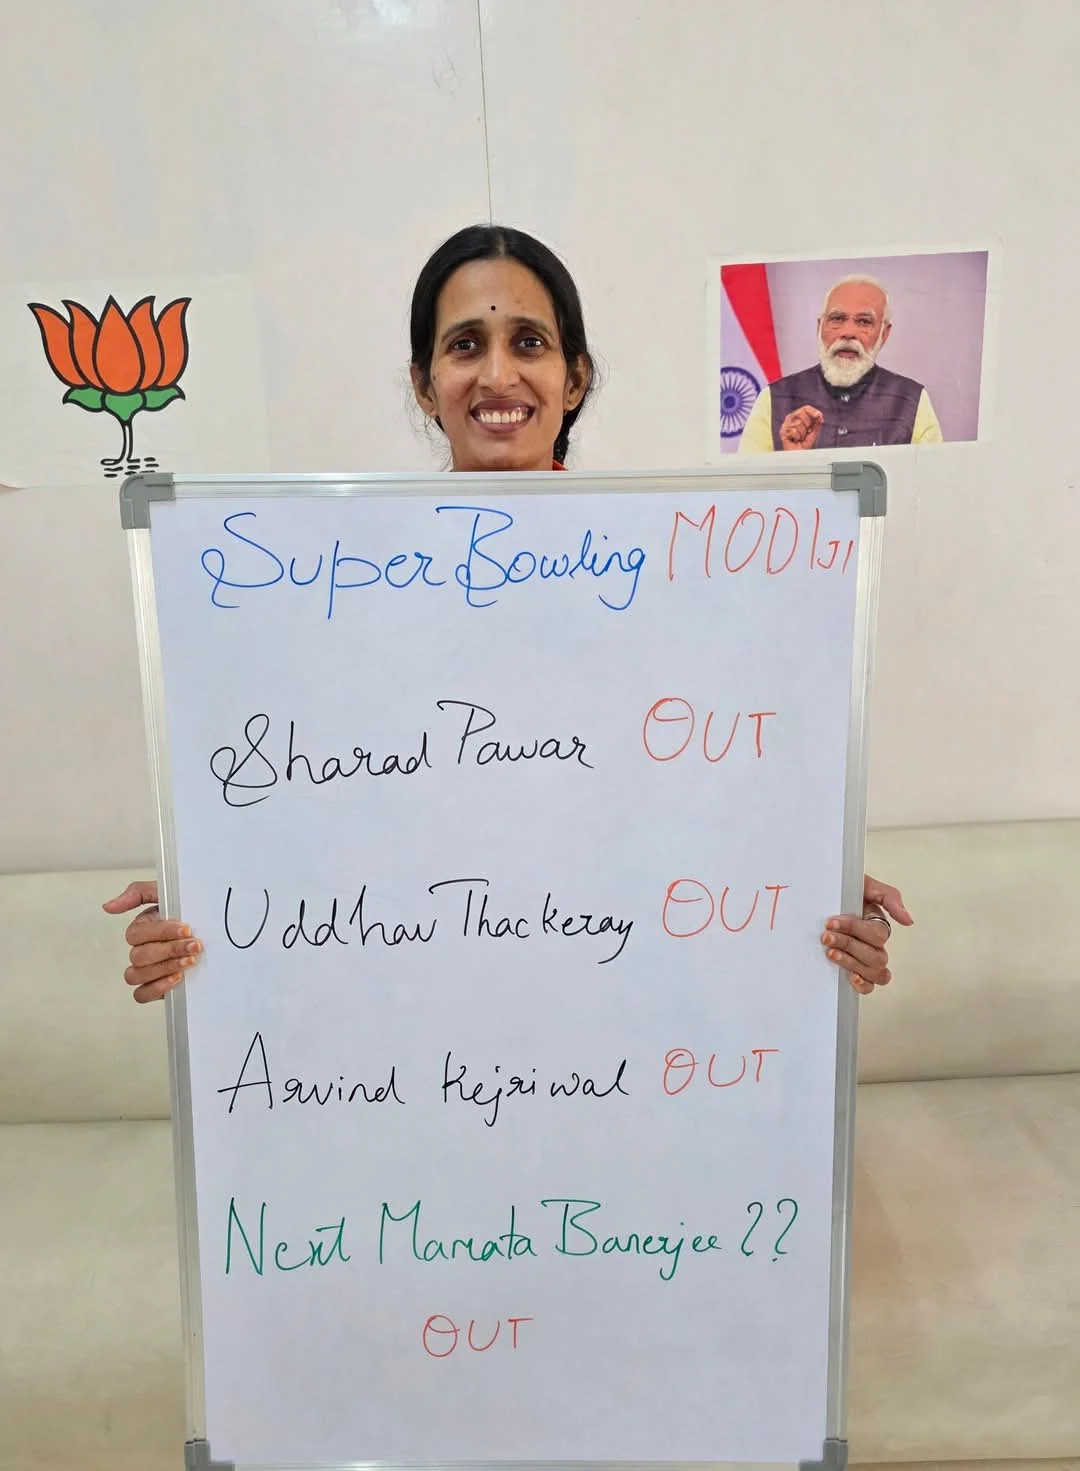 Super Bowling MODI JI
Sharad Pawar OUT
Uddhav Thackeray OUT
Arvind Kejriwal OUT
Next Mamata Banerjee ??
OUT